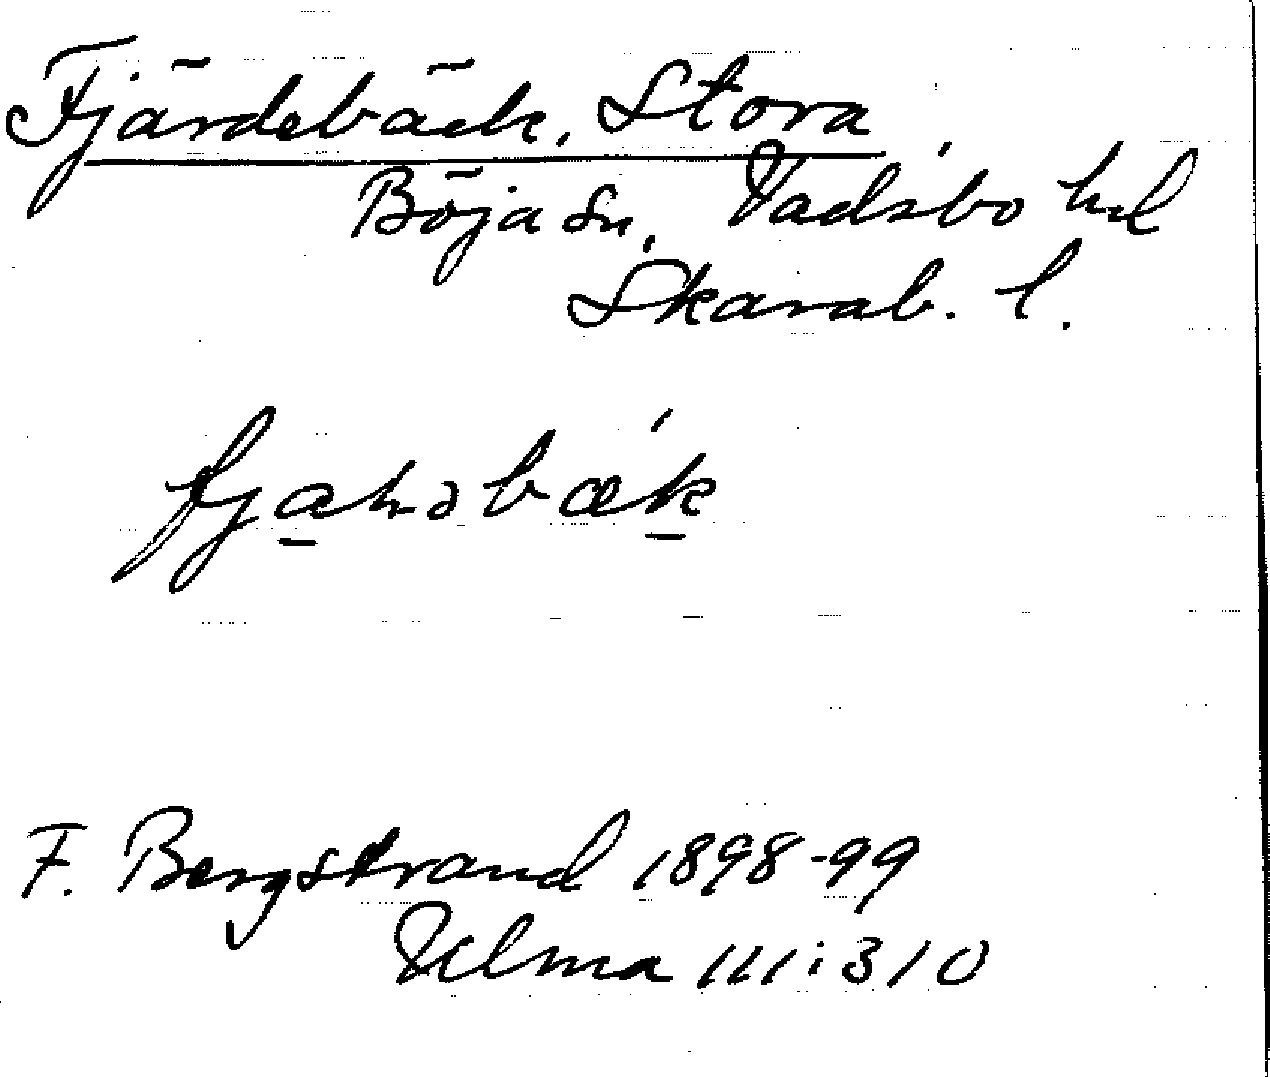 Fjärdebäck, Stora
Böja sn, Vadsbo hd
Skarab. l.
fjahəbæk
F. Bergstrand 1898-99
Ulma 111:310